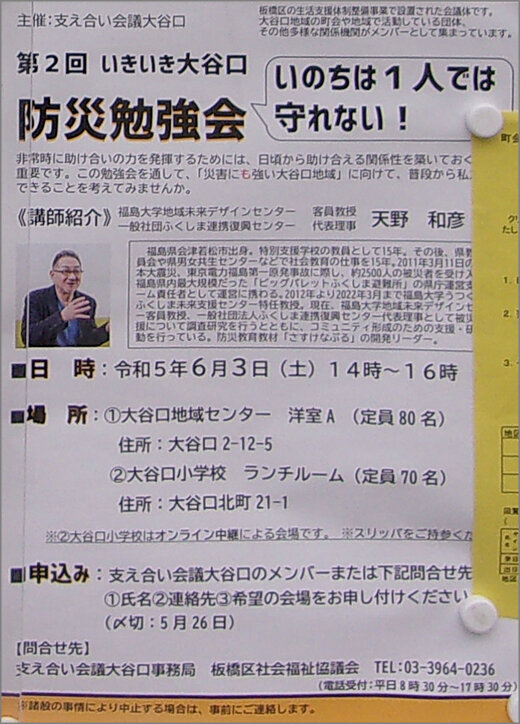 主催：支え合い会議大谷口
板橋区の生活支援体制整備事業で設置された会議体です。
大谷口地域の町会や地域で活動している団体、
その他多様な関係機関がメンバーとして集まっています。
第２回 いきいき大谷口
防災勉強会
いのちは１人では
守れない！
非常時に助け合いの力を発揮するためには、日頃から助け合える関係性を築いておく
重要です。この勉強会を通して、「災害にも強い大谷口地域」に向けて、普段から私
できることを考えてみませんか。
《講師紹介》
福島大学地域未来デザインセンター 客員教授
一般社団法人ふくしま連携復興センター 代表理事
天野 和彦
福島県会津若松市出身。特別支援学校の教員として15年。その後、県教
員会や県男女共生センターなどで社会教育の仕事を15年。2011年3月11日の
本大震災、東京電力福島第一原発事故に際し、約2500人の被災者を受け入
福島県内最大規模だった「ビッグパレットふくしま避難所」の県庁運営支
ーム責任者として運営に携わる。2012年より2022年3月まで福島大学うつく
ふくしま未来支援センター特任教授。現在、福島大学地域未来デザインセ
ー客員教授、一般社団法人ふくしま連携復興センター代表理事として被災
援について調査研究を行うとともに、コミュニティ形成のための支援・研
動を行っている。防災教育教材「さすけなぶる」の開発リーダー。
■日 時：令和５年６月３日（土）１４時～１６時
■場 所：①大谷口地域センター 洋室A （定員 80 名）
住所：大谷口 2-12-5
②大谷口小学校 ランチルーム（定員 70 名）
住所：大谷口北町 21-1
※②大谷口小学校はオンライン中継による会場です。 ※スリッパをご持参くだ
■申込み：支え合い会議大谷口のメンバーまたは下記問合せ先
①氏名②連絡先③希望の会場をお申し付けください
（〆切：5 月 26 日）
【問合せ先】
支え合い会議大谷口事務局 板橋区社会福祉協議会 TEL：03-3964-0236
（電話受付：平日 8 時 30 分～17 時 30 分）
※諸般の事情により中止する場合は、事前にご連絡します。
町会